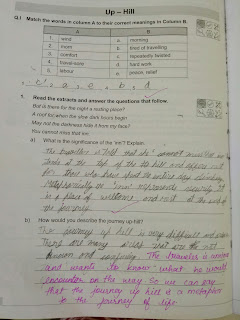 Up - Hill
Q.I Match the words in column A to their correct meanings in Column B.
A B
1. wind a. morning
2. morn b. tired of travelling
3. comfort c. repeatedly twisted
4. travel-sore d. hard work
5. labour e. peace, relief
c, a, e, b, d
1. Read the extracts and answer the questions that follow.
But is there for the night a resting-place?
A roof for when the slow dark hours begin
May not the darkness hide it from my face?
You cannot miss that inn.
a) What is the significance of the 'inn'? Explain.
The traveller is told that he cannot miss the inn
at the top of the hill and
for those who have the entire day climbing
Metaphorically an 'inn' represents
is a place of welcome and rest at the end of
the journey
b) How would you describe the journey up-hill?
The journey up hill is very difficult and
There are many that are
and The traveler is
and wants to know what he would
encounter on the way. So we can say
that the journey up hill is a metaphor
to the journey of life.